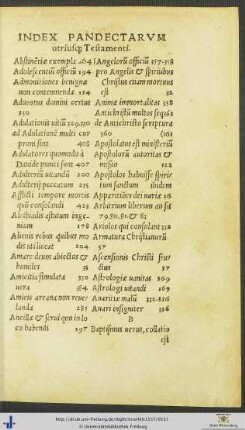 INDEX PANDECTARVM
utriusq; Testamenti.
Abstinẽtiæ exempla 464
Adolescentũ officiũ 194
Admonitiones benignæ
non contemnendæ 184
Aduentus domini certus
350
Adulationis uitiũ 229.230
ad Adulationẽ multi cur
proni sint 403
Adulatores quomodo à
Dauide puniti sint 407
Adulterij uitandũ 200
Adulterij peccatum 235
Afflicti tempore mortis
qũo consolandi 423
Alcibiadis astutum inge-
nium 278
Alienis rebus quibus mo
dis utiliceat 204
Amare deum abiectos &
humiles 35
Amicitia simulata 310
uera 64
Amicis arcana non reue
landa 285
Ancillæ & serui quo in lo
co habendi 197
Angelorũ officiũ 317.318
pro Angelis & spiritibus
Christus etiam mortuus
est 32
Animæ immortalitas 358
Antichristũ multos sequi
de Antichristo scriptura
360 (161
Apostolatus est ministeriũ
Apostolorũ autoritas &
missio 112
Apostolos habuisse spiri
tum sanctum ibidem
Apparitiões dei uariæ 16
Arbitrium liberum an sit
79.80.81.& 82
Arioli qui consolant 332
Armatura Christianorũ
57
Ascensionis Christi fru
ctus 37
Astrologiæ uanitas 269
Astrologi uitandi 169
Auaritiæ malũ 335.336
Auari insigniter 336
B
Baptismus uerus, collatio
est
http://dl.ub.uni-freiburg.de/diglit/
© Universitätsbibliothek Freiburg